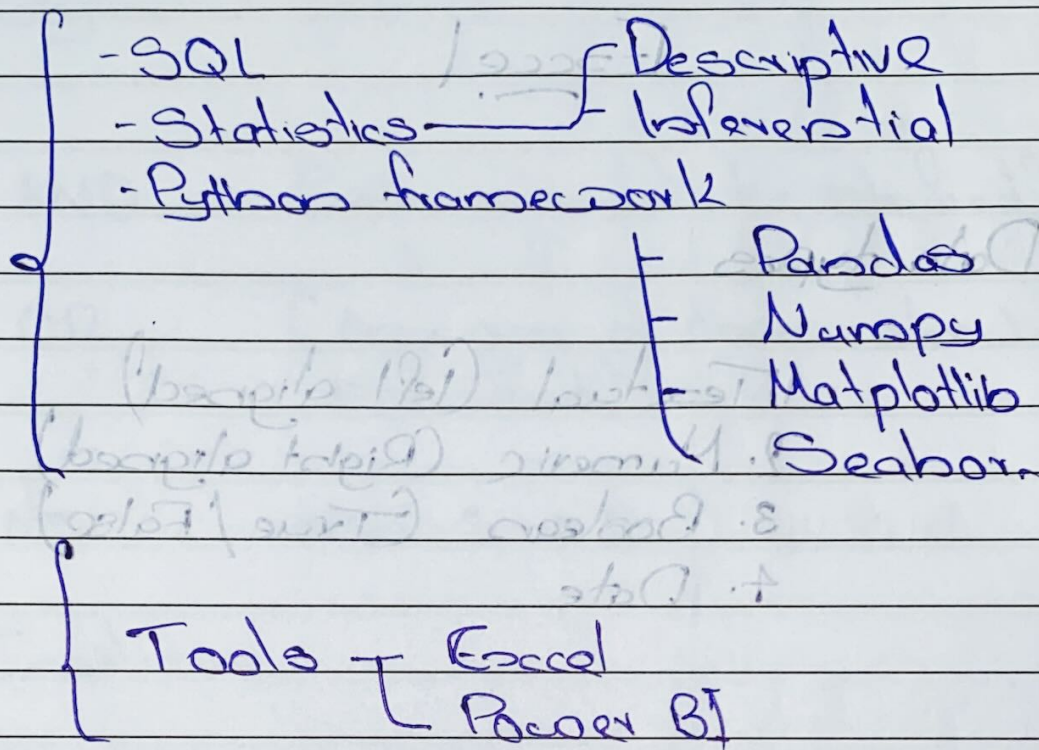 - SQL
- Statistics
Descriptive
Inferential
- Python framework
Pandas
Numpy
Matplotlib
Seabor.
Tools
Excel
Power BI